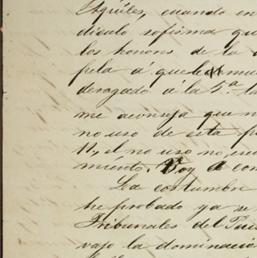 Aquiles, cuando en
diculo sofisma que
los honores de la
pela á que le mu
derogado la 5ª. ta
me aconseja que n
no uso de esta p
11, el no uso no, en
miento. Voy á co
La costumbre
he probado ya se
Tribunales del Pai
vajo la dominació